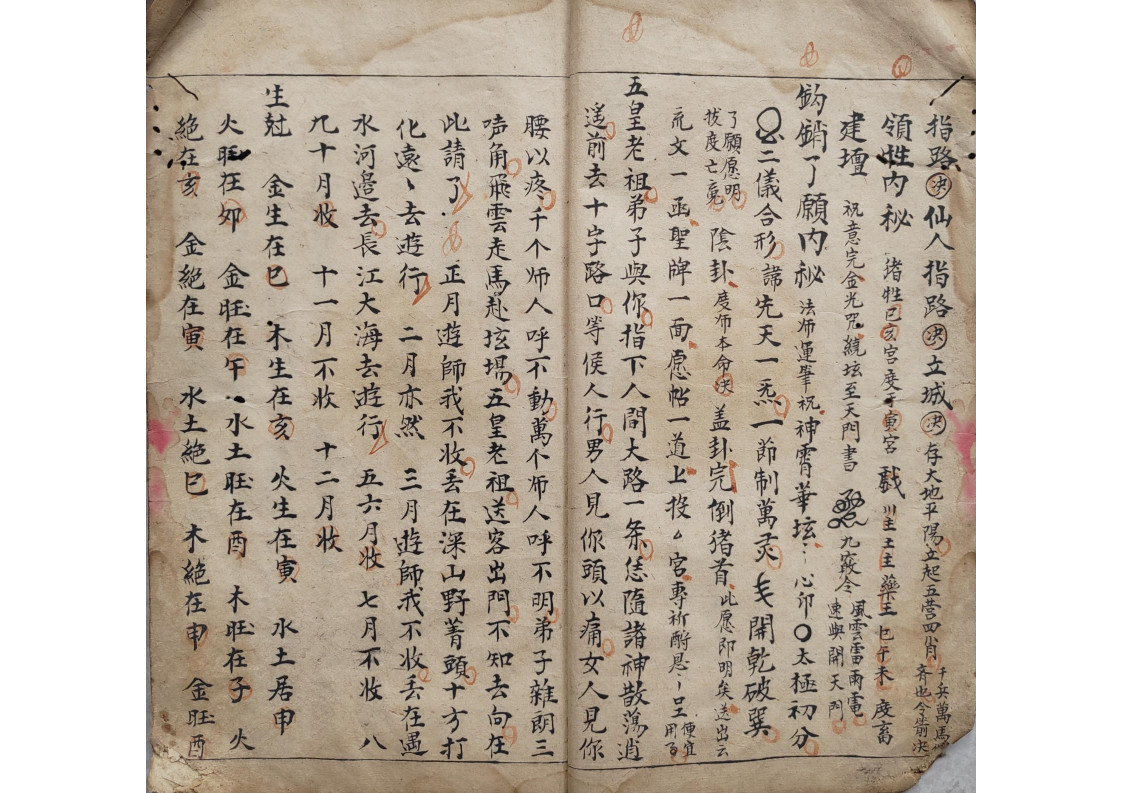 指路決仙人指路決立城決存大地平陽立起五营四肖千兵萬馬齐也令箭決
領牲内秘 堵牲巳亥宮度于寅宮 戲 川主土主藥王 巳午未 度畜
建壇 祝意完金光咒繞坛至天門書 九竅令 風雲雷雨電速與開天門
鈎銷了願内秘 法师運筆祝神霄華坛 心卯〇太極初分
二儀合形 諦先天一炁一節制萬灵 开開乾破巽
了願愿明拔度亡竟 陰卦度师本命決 盖卦完倒猪首此愿即明矣送出云
元文一函聖牌一面愿帖一道上投 宮專祈酧恩 呈便宜用
五皇老祖弟子與你指下人間大路一条恁隨諸神散蕩逍
遥前去十字路口等侯人行男人見你頭以痛女人見你
腰以疼千个师人呼不動萬个师人呼不明弟子雜朗三
声角飛雲走馬赴坛場五皇老祖送客出門不知去向在
此請了 正月遊師我不收丢在深山野菁頭十方打
化遠丶去遊行 二月亦然 三月遊師我不收丢在遇
水河邉去長江大海去遊行 五六月收 七月不收 八
九十月收 十一月不收 十二月收
生尅 金生在巳 木生在亥 火生在寅 水土居申
火旺在卯 金旺在午 水土旺在酉 木旺在子 火
絕在亥 金絕在寅 水土絕巳 木絕在申 金旺酉